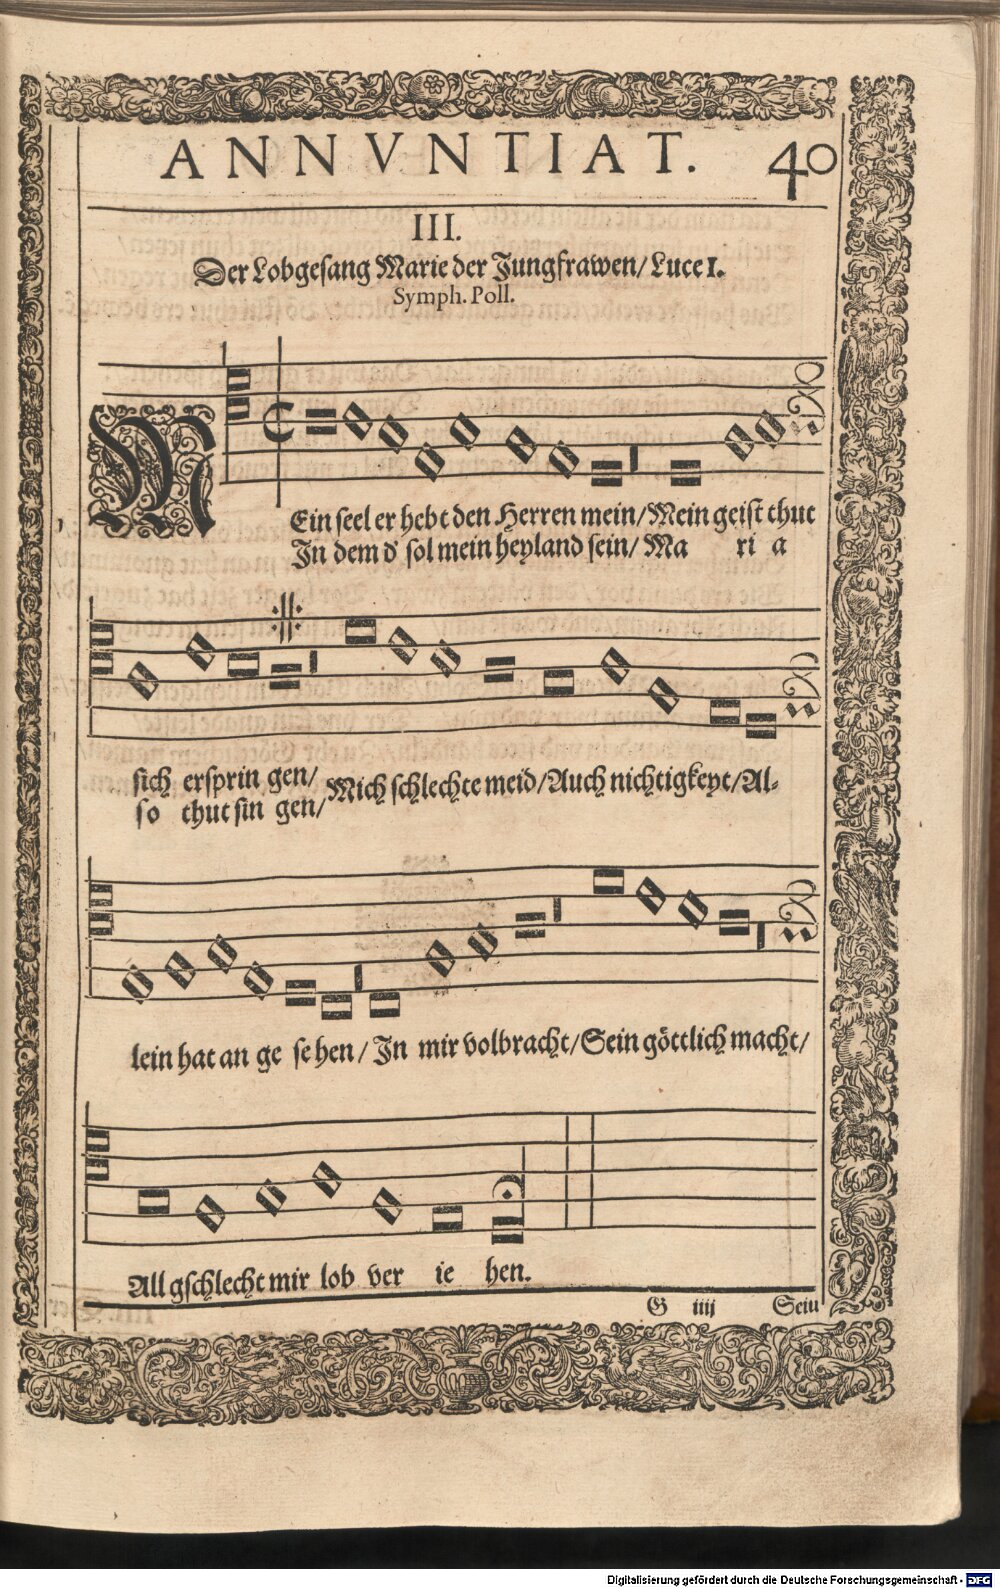 ANNVNTIAT. 40
III.
Der Lobgesang Marie der Jungfrawen/ Luce I.
Symph. Poll.
MEin seel er hebt den Herren mein/ Mein geist thut
In dem d' sol mein heyland sein/ Ma ri a
sich ersprin gen/ Mich schlechte meid/ Auch nichtigkeyt/ Al-
so thut sin gen/
lein hat an ge se hen/ In mir volbracht/ Sein göttlich macht/
All gschlecht mir lob ver ie hen.
G iiij Sein
Digitalisierung gefördert durch die Deutsche Forschungsgemeinschaft - DFG